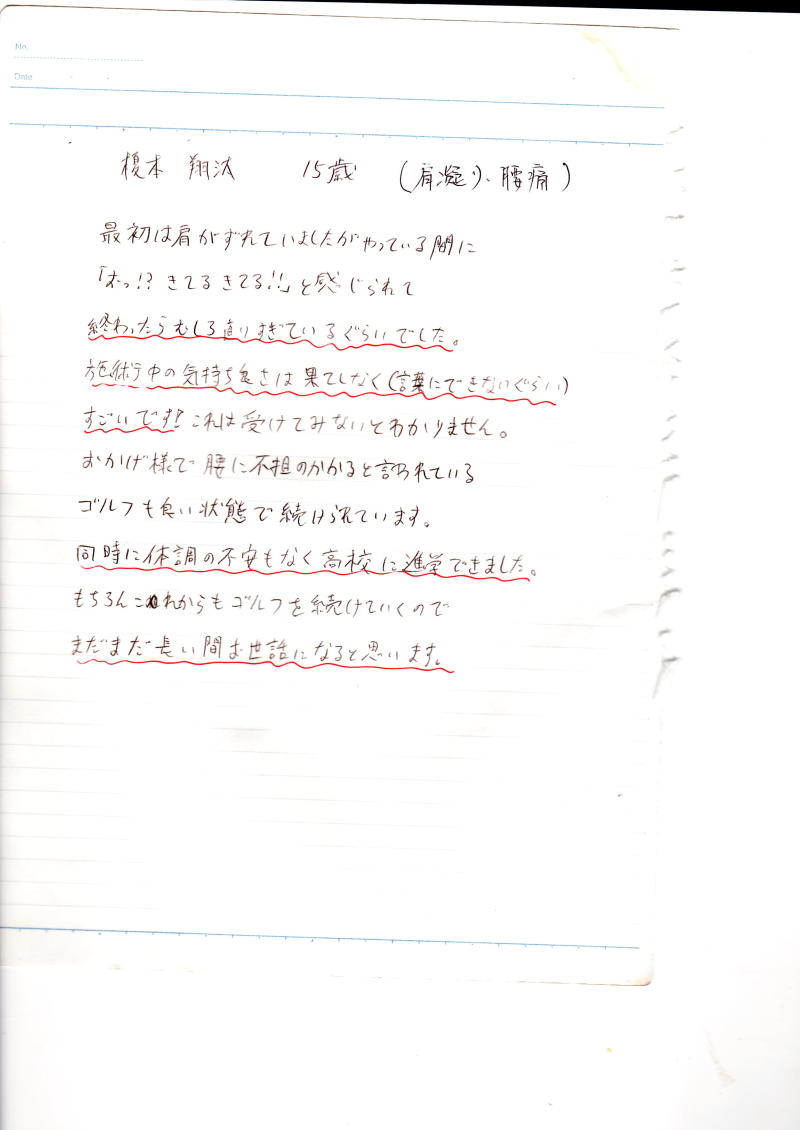 No.
Date
榎本 翔汰 15歳 (肩凝り、腰痛)
最初は肩がずれていましたがやっている間に
「おっ!? きてる きてる!!」と感じられて
終わったらむしろ直りすぎているぐらいでした。
施術中の気持ち良さは果てしなく(言葉にできないぐらい)
すごいです! これは受けてみないとわかりません。
おかげ様で腰に不担のかかると言われている
ゴルフも良い状態で続けられています。
同時に体調の不安もなく高校に進学できました。
もちろんこれからもゴルフを続けていくので
まだまだ長い間お世話になると思います。